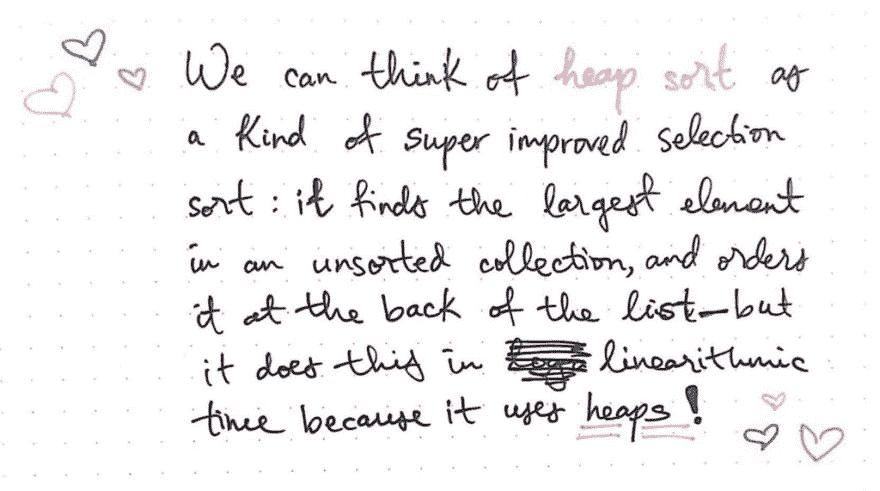 We can think of heap sort as
a kind of super improved selection
sort: it finds the largest element
in an unsorted collection, and orders
it at the back of the list—but
it does this in linearithmic
time because it uses heaps!